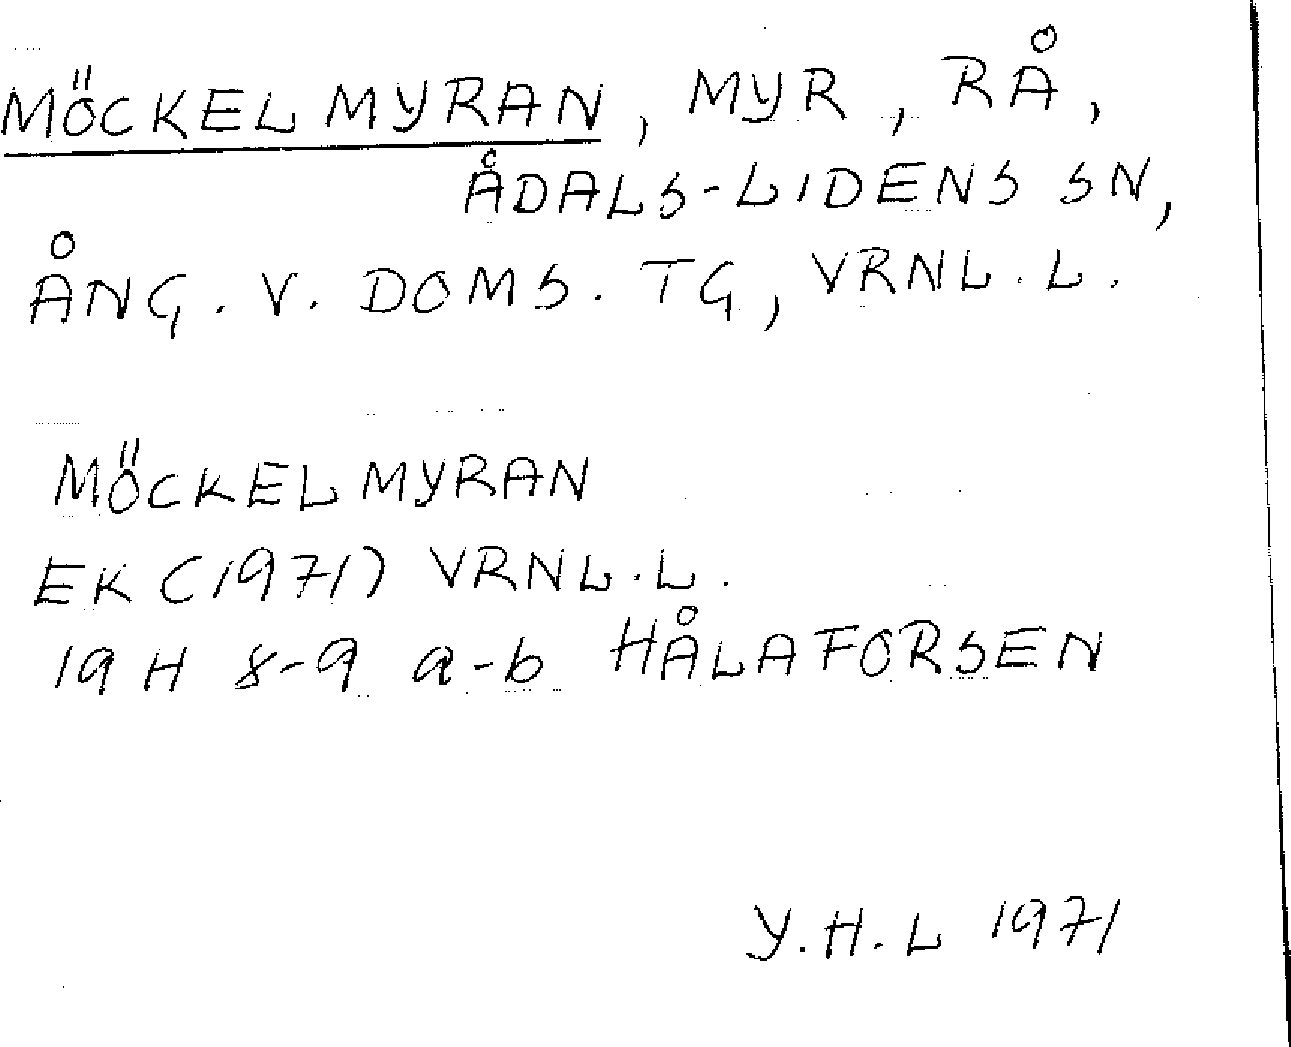 MÖCKELMYRAN, MYR, RÅ,
ÅDALS-LIDENS SN,
ÅNG. V. DOMS. TG, VRNL. L.
MÖCKELMYRAN
EK (1971) VRNL. L.
19 H 8-9 a-b HÅLAFORSEN
Y. H. L 1971